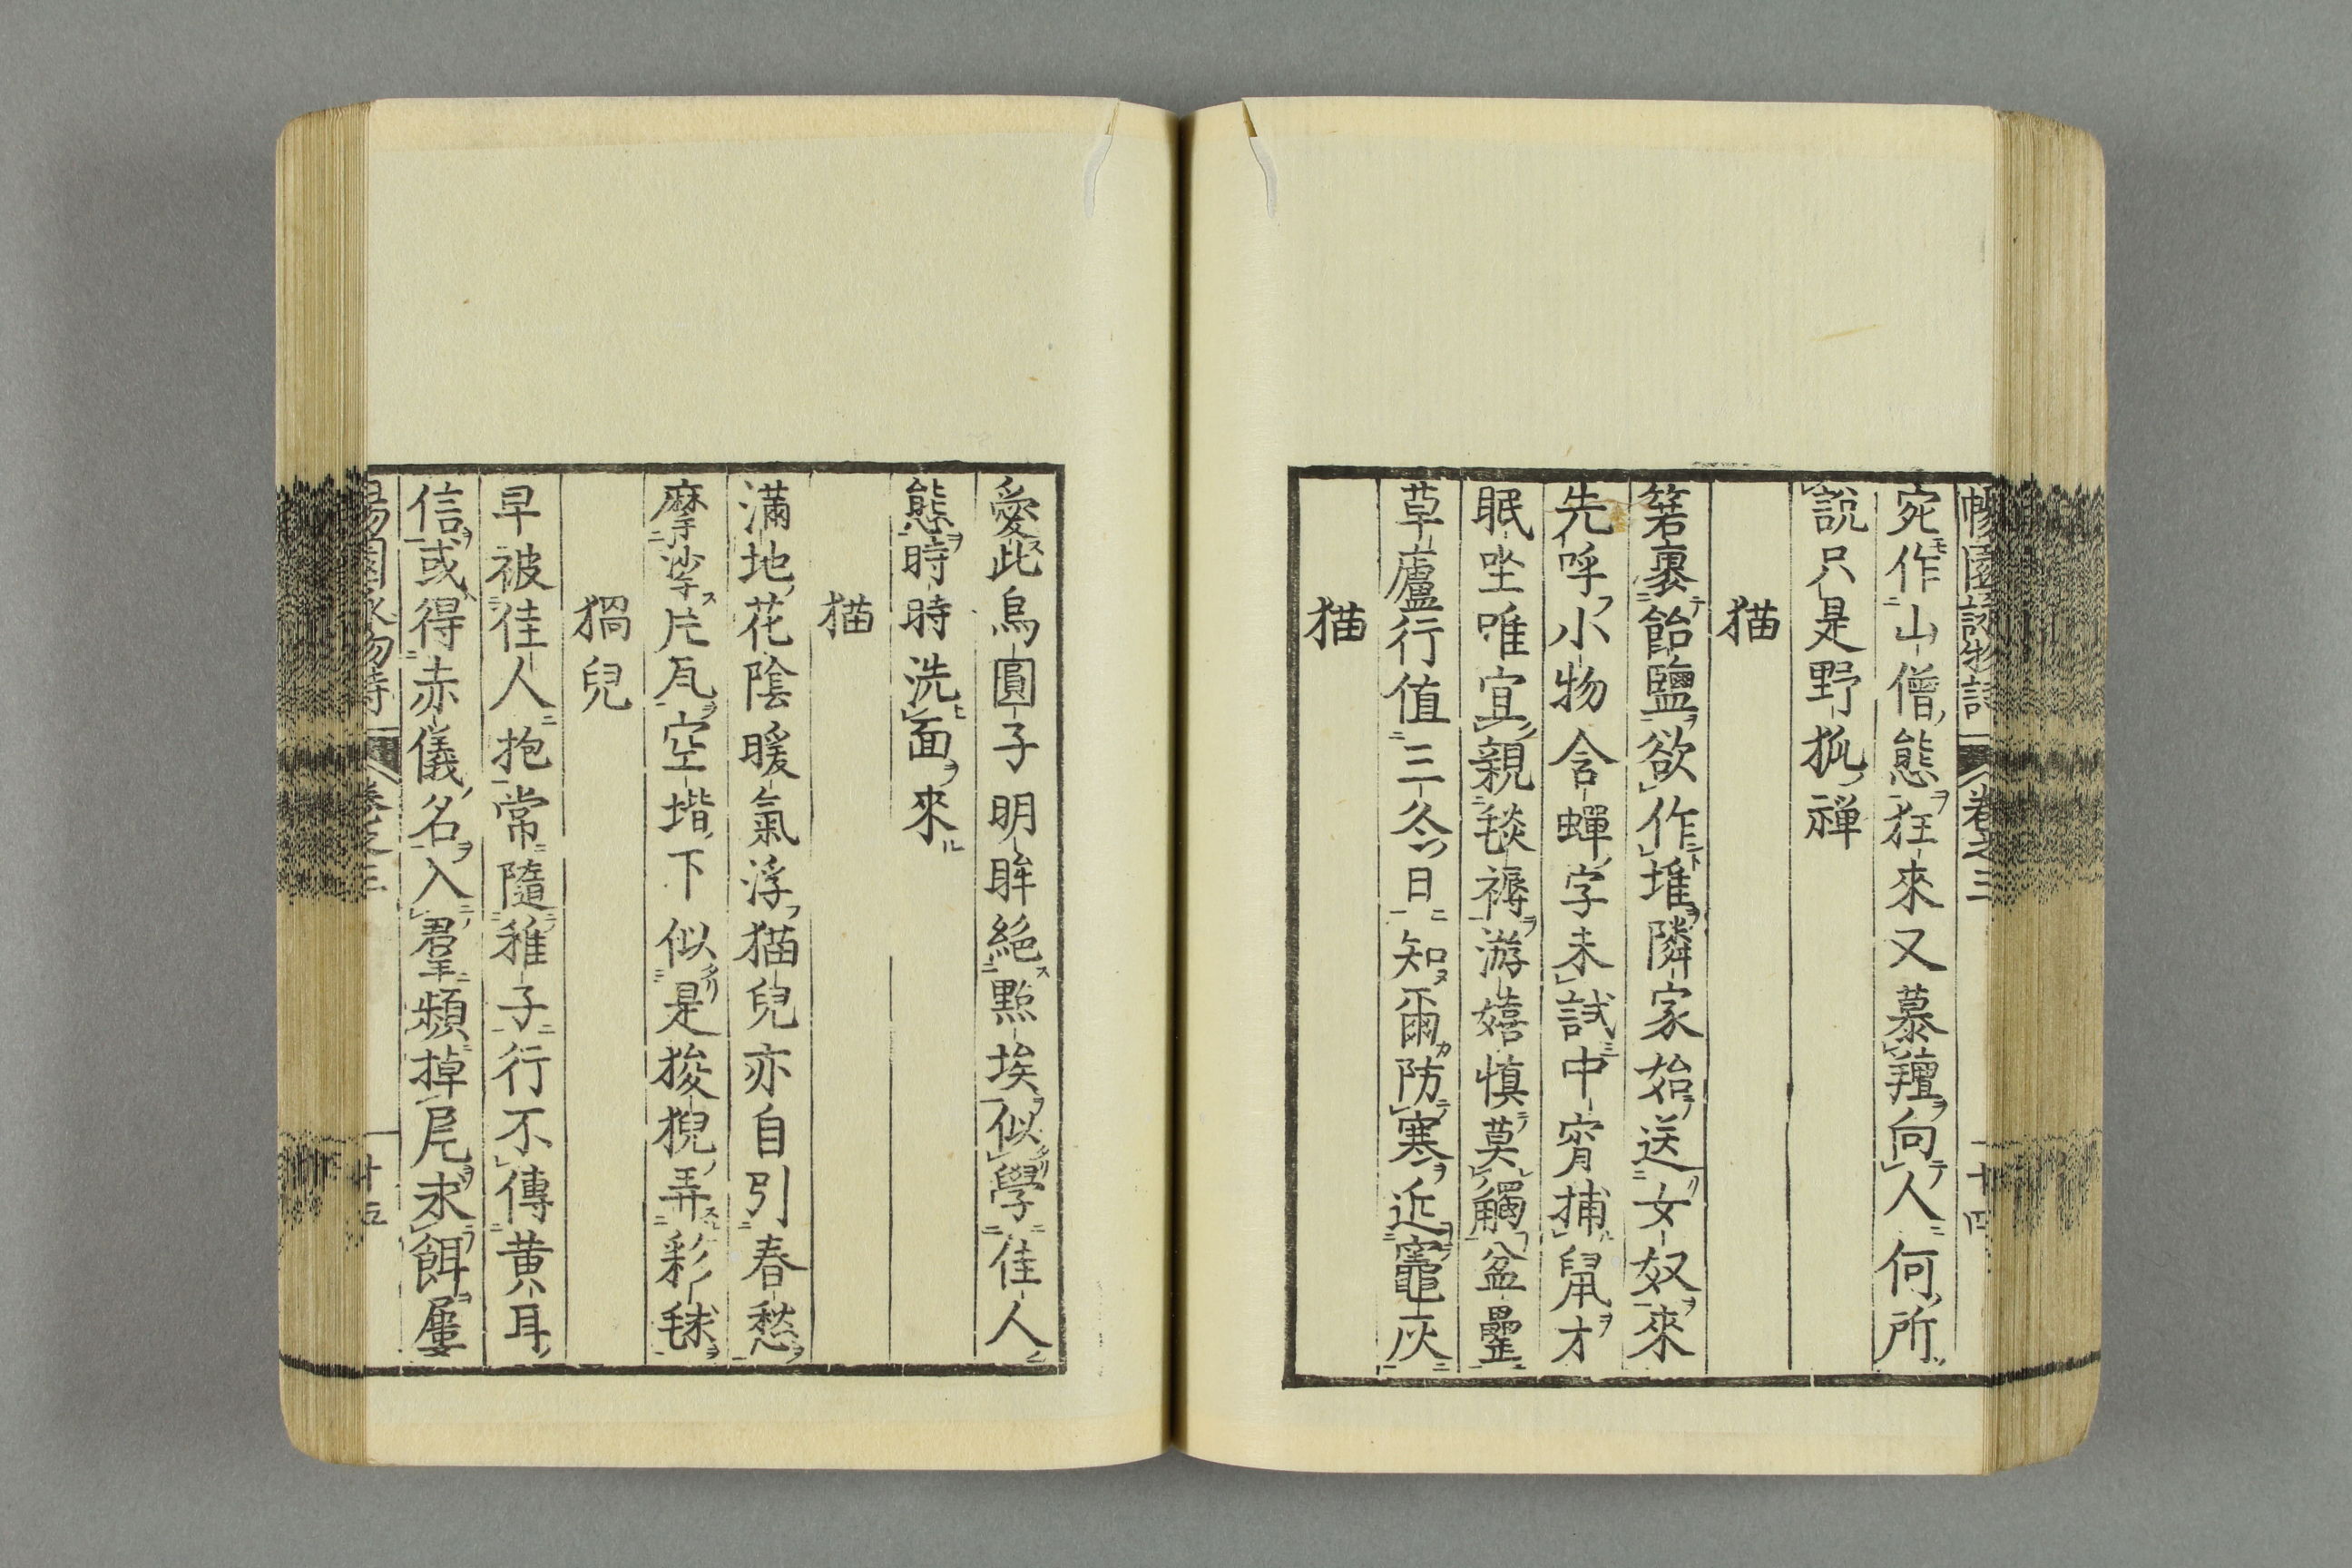 暢園詠物詩 卷之三 十四
宛作山僧態狂來又慕羶向人何所
說只是野狐禅
猫
箬裹飴鹽欲作堆隣家始送女奴來
先呼小物含蟬字未試中宵捕鼠才
眠坐唯宜親毯褥游嬉慎莫觸盆罍
草廬行值三冬日知爾防寒近竈灰
猫
愛此烏圓子明眸絶點埃似學佳人
態時時洗面來
猫
滿地花陰暖氣浮猫兒亦自引春愁
摩挲片瓦空堦下似是狻猊弄彩毬
猧兒
早被佳人抱常隨稚子行不傳黄耳
信或得赤儀名入羣頻掉尾求餌屢
暢園詠物詩 卷之三 十五